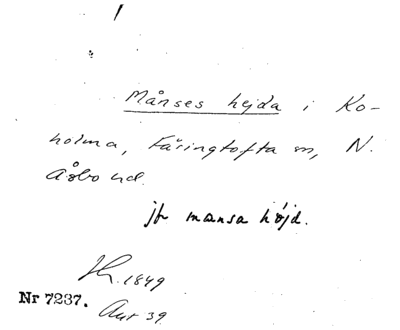 Månses hejda i Ko-
holma, Färingtofta sn, N.
Åsbo hd.
jfr mansa höjd.
1849
Nr 7237.
Aut 39.